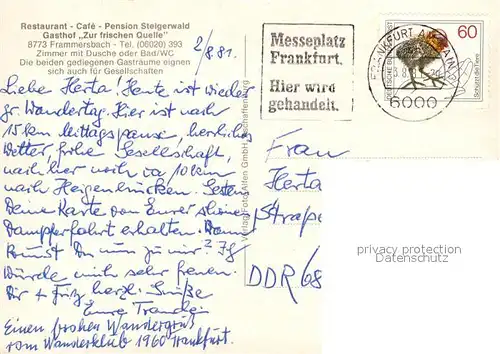 Restaurant - Café - Pension Steigerwald
Gasthof „Zur frischen Quelle"
8773 Frammersbach - Tel. (06020) 393
Zimmer mit Dusche oder Bad/WC
Die beiden gediegenen Gasträume eignen
sich auch für Gesellschaften
2/8.81.
Liebe Herta! Heute ist wieder
gr. Wandertag. Hier ist nach
15 km Mittagspause, herrliches
Wetter, frohe Gesellschaft,
nach hier noch ca 10 km
nach Heigenbrücken. Gestern
Deine Karte von Eurer schönen
Dampferfahrt erhalten. Wann
kommst Du nun zu mir? Ich
würde mich sehr freuen.
Dir + Fritz herzl. Grüße
Eure
Einen frohen Wandergruß
vom Wanderklub 1960 Frankfurt.
Verlag Foto Alfen GmbH, Aschaffenburg
Messeplatz
Frankfurt.
Hier wird
gehandelt.
FRANKFURT AM MAIN
6000
60
DEUTSCHE BUNDESPOST
Schützt die Tiere
Frau
Herta
Straße
DDR 68
privacy protection
Datenschutz